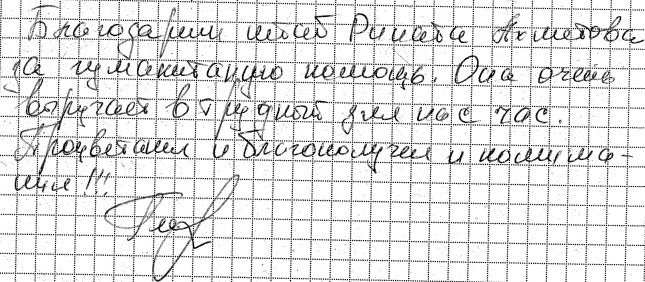 Благодарим штаб Рината Ахметова
за гуманитарную помощь. Она очень
выручает в трудный для нас час.
Процветания и благополучия и понима-
ния!!!